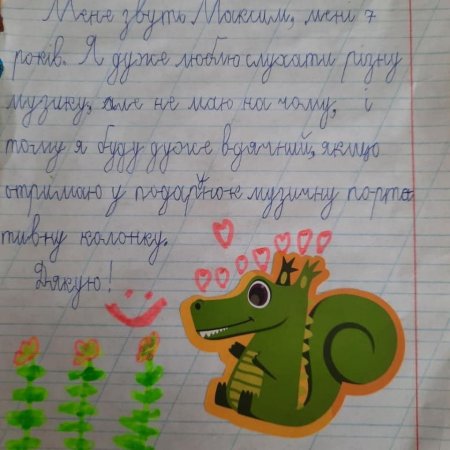 Мене звуть Максим, мені 7
років. Я дуже люблю слухати різну
музику, але не маю на чому, і
тому я буду дуже вдячний, якщо
отримаю у подарунок музичну порта
тивну колонку.
Дякую!